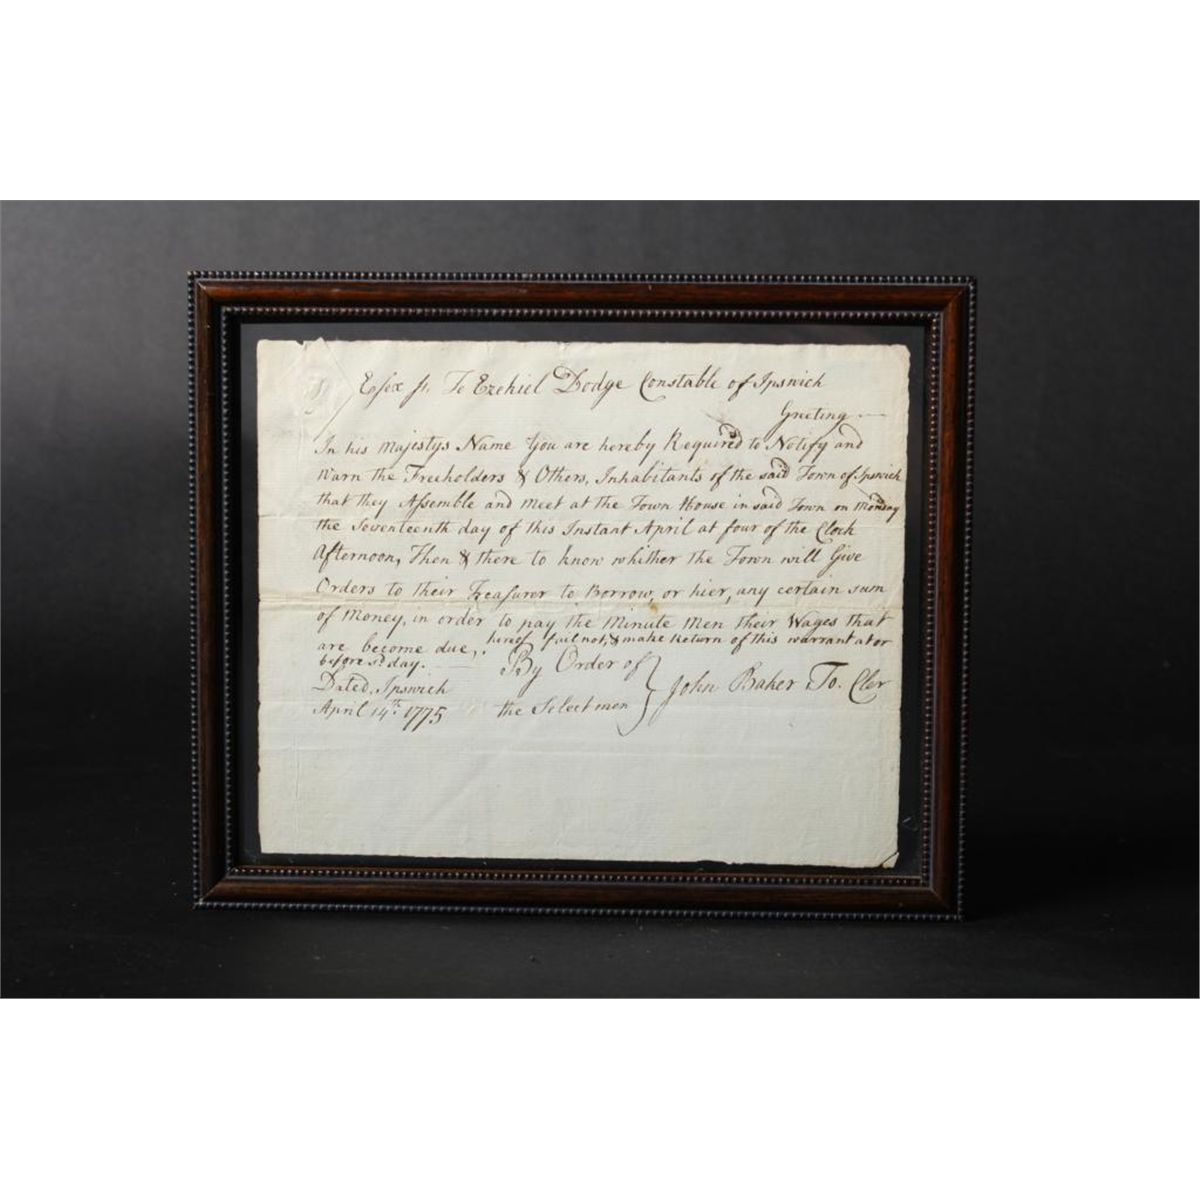 Essex ss. To Ezekiel Dodge Constable of Ipswich
Greeting
In his Majestys Name You are hereby Required to Notify and
Warn the Freeholders & Others, Inhabitants of the said Town of Ipswich
that they Assemble and meet at the Town House in said Town on Monday
the Seventeenth day of this Instant April at four of the Clock
Afternoon, Then & there to know whither the Town will Give
Orders to their Treasurer to Borrow, or hier, any certain sum
of Money, in order to pay the Minute Men their Wages that
are become due, hereof fail not, & make Return of this warrant at or
before sd. day.
By Order of
the Selectmen
John Baker To. Cler
Dated, Ipswich
April 14th. 1775